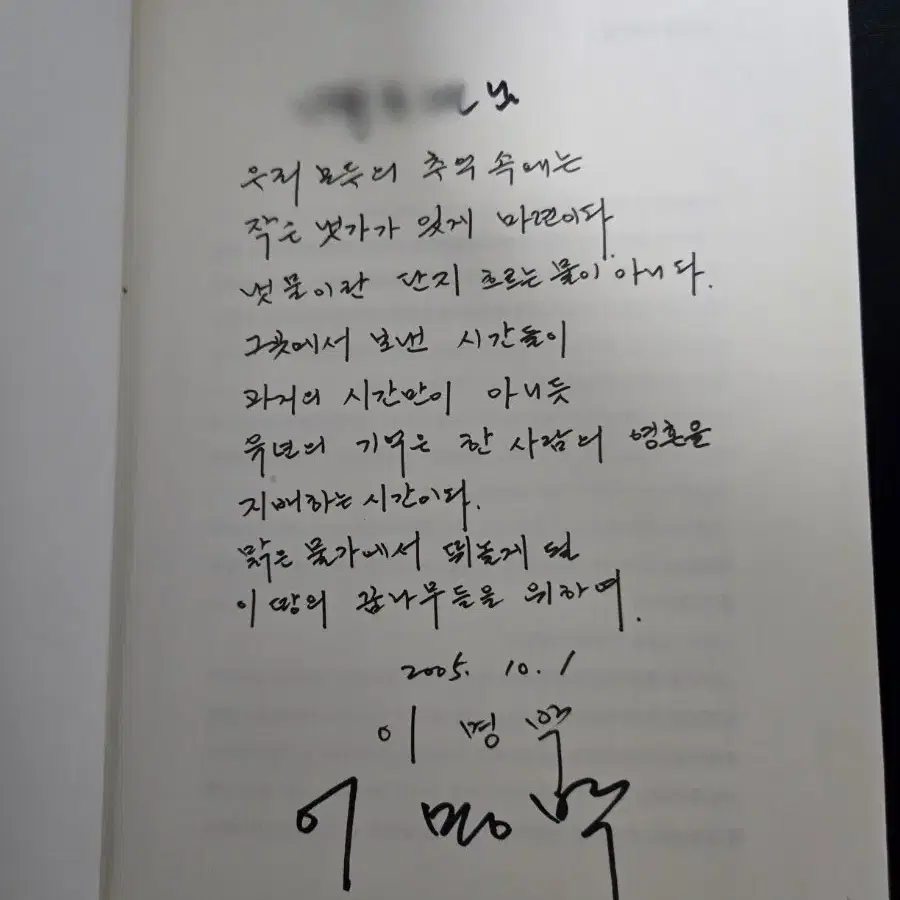 님
우리 모두의 추억 속에는
작은 냇가가 있게 마련이다.
냇물이란 단지 흐르는 물이 아니다.
그곳에서 보낸 시간들이
과거의 시간만이 아니듯
유년의 기억은 한 사람의 영혼을
지배하는 시간이다.
맑은 물가에서 뛰놀게 될
이 땅의 꿈나무들을 위하여.
2005. 10. 1
이명박
이명박